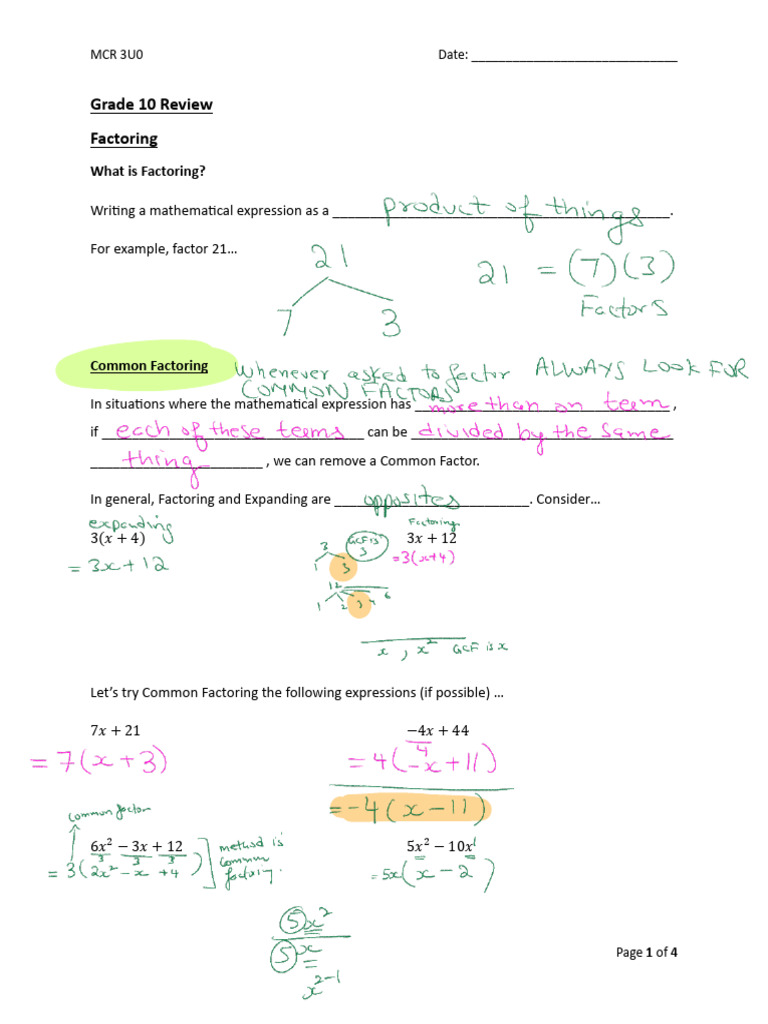 MCR 3U0 Date: ____________________________
Grade 10 Review
Factoring
What is Factoring?
Writing a mathematical expression as a product of things.
For example, factor 21…
21
7 3
21 = (7)(3)
Factors
Common Factoring Whenever asked to factor ALWAYS LOOK FOR
COMMON FACTORS
In situations where the mathematical expression has more than on term ,
if each of these terms can be divided by the same
thing , we can remove a Common Factor.
In general, Factoring and Expanding are opposites. Consider…
expanding Factoring
3(x + 4) 3x + 12
= 3x + 12 = 3(x+4)
3 GCF is 3
1 3
12
1 2 3 4 6
x , x² GCF is x
Let's try Common Factoring the following expressions (if possible) …
7x + 21 −4x + 44
4
= 7(x + 3) = 4(-x + 11)
= -4(x - 11)
common factor
6x² − 3x + 12 method is 5x² − 10x¹
3 3 3 common
= 3(2x² - x + 4) factoring. = 5x(x - 2)
5x²
5x
x²⁻¹
Page 1 of 4